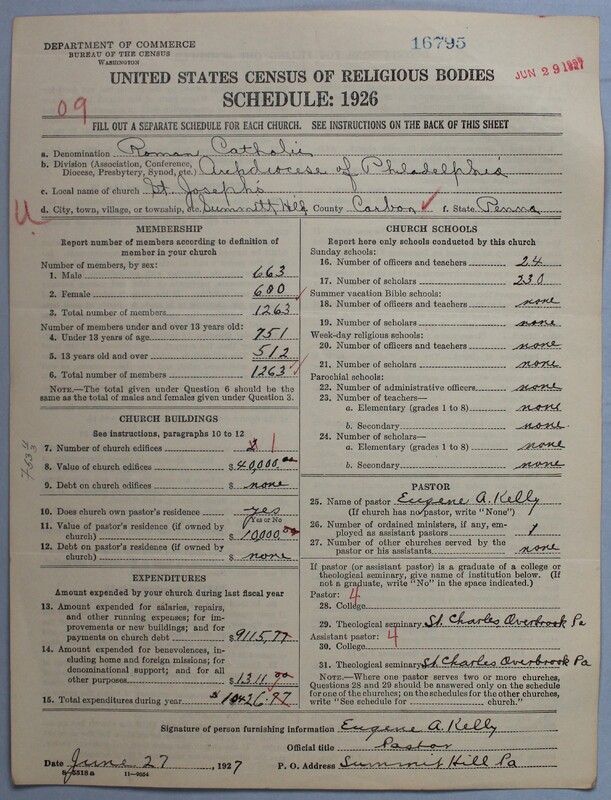 DEPARTMENT OF COMMERCE
BUREAU OF THE CENSUS
WASHINGTON
16795
JUN 29 1927
UNITED STATES CENSUS OF RELIGIOUS BODIES
SCHEDULE: 1926
09
FILL OUT A SEPARATE SCHEDULE FOR EACH CHURCH. SEE INSTRUCTIONS ON THE BACK OF THIS SHEET
a. Denomination Roman Catholic
b. Division (Association, Conference, Diocese, Presbytery, Synod, etc.) Archdiocese of Philadelphia
c. Local name of church St. Joseph's
d. City, town, village, or township, etc. Summit Hill County Carbon f. State Penna
MEMBERSHIP
Report number of members according to definition of member in your church
Number of members, by sex:
1. Male 663
2. Female 600
3. Total number of members 1263
Number of members under and over 13 years old:
4. Under 13 years of age 751
5. 13 years old and over 512
6. Total number of members 1263
NOTE.—The total given under Question 6 should be the same as the total of males and females given under Question 3.
CHURCH BUILDINGS
See instructions, paragraphs 10 to 12
7. Number of church edifices 1
8. Value of church edifices $40,000.00
9. Debt on church edifices $ none
10. Does church own pastor's residence yes
Yes or No
11. Value of pastor's residence (if owned by church) $10,000.00
12. Debt on pastor's residence (if owned by church) $ none
EXPENDITURES
Amount expended by your church during last fiscal year
13. Amount expended for salaries, repairs, and other running expenses; for improvements or new buildings; and for payments on church debt $9115.77
14. Amount expended for benevolences, including home and foreign missions; for denominational support; and for all other purposes $1311.20
15. Total expenditures during year $10426.97
CHURCH SCHOOLS
Report here only schools conducted by this church
Sunday schools:
16. Number of officers and teachers 24
17. Number of scholars 230
Summer vacation Bible schools:
18. Number of officers and teachers none
19. Number of scholars none
Week-day religious schools:
20. Number of officers and teachers none
21. Number of scholars none
Parochial schools:
22. Number of administrative officers none
23. Number of teachers—
a. Elementary (grades 1 to 8) none
b. Secondary none
24. Number of scholars—
a. Elementary (grades 1 to 8) none
b. Secondary none
PASTOR
25. Name of pastor Eugene A. Kelly
(If church has no pastor, write "None")
26. Number of ordained ministers, if any, employed as assistant pastors 1
27. Number of other churches served by the pastor or his assistants none
If pastor (or assistant pastor) is a graduate of a college or theological seminary, give name of institution below. (If not a graduate, write "No" in the space indicated.)
Pastor: 4
28. College
29. Theological seminary St. Charles Overbrook Pa
Assistant pastor: 4
30. College
31. Theological seminary St. Charles Overbrook Pa
NOTE.—Where one pastor serves two or more churches, Questions 28 and 29 should be answered only on the schedule for one of the churches; on the schedules for the other churches, write "See schedule for church."
Signature of person furnishing information Eugene A. Kelly
Official title Pastor
Date June 27, 1927 P. O. Address Summit Hill Pa
11—9054